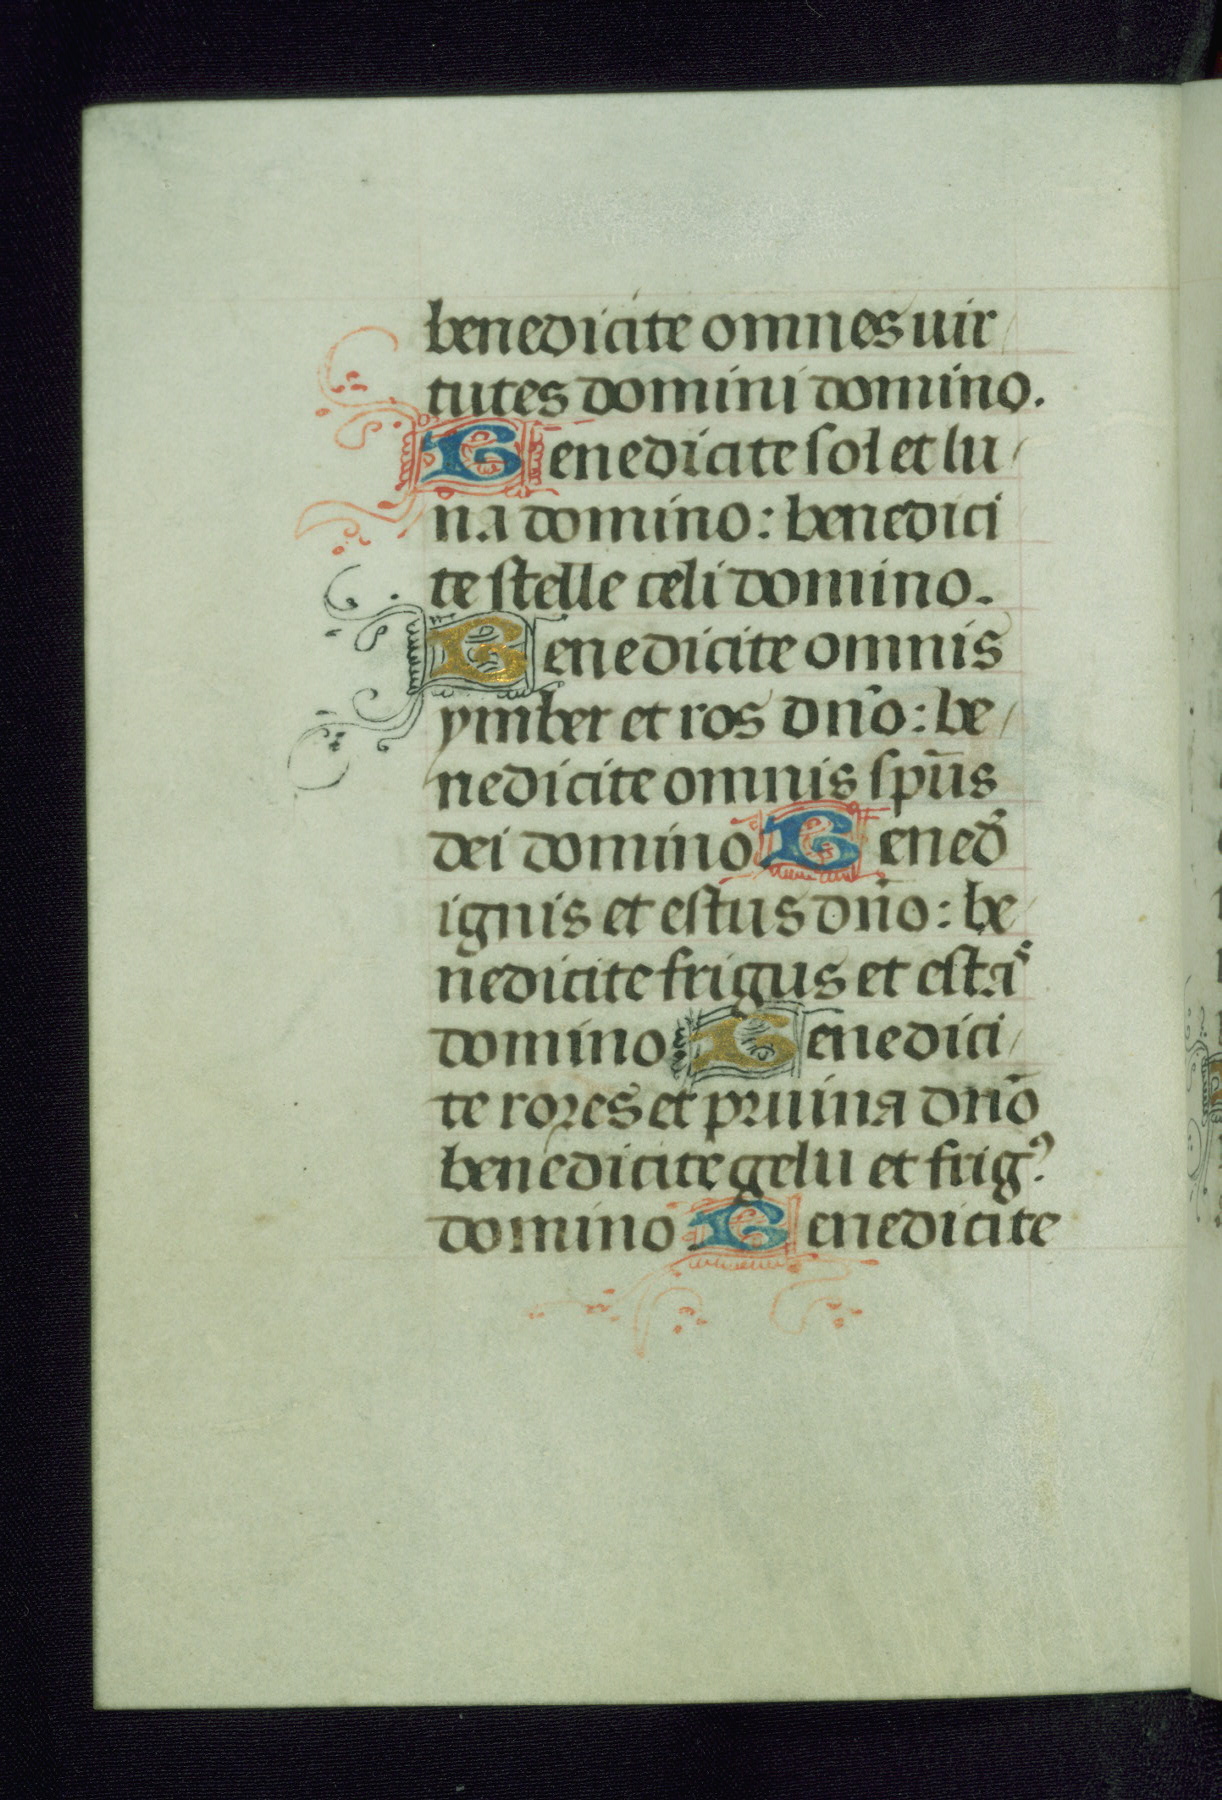 benedicite omnes uir
tutes domini domino.
Benedicite sol et lu
na domino: benedici
te stelle celi domino.
Benedicite omnis
ymber et ros dn̄o: be
nedicite omnis sp̄us
dei domino Bened̄
ignis et estus dn̄o: be
nedicite frigus et estaˢ
domino Benedici
te rores et pruina dn̄o
benedicite gelu et frigꝰ
domino Benedicite